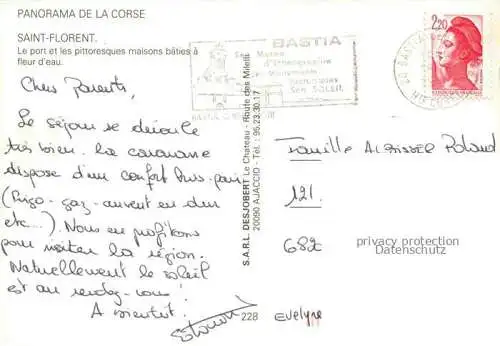 PANORAMA DE LA CORSE
SAINT-FLORENT.
Le port et les pittoresques maisons bâties à
fleur d'eau.
Chers Parents,
Le séjour se déroule
très bien. La caravane
dispose d'un confort hors-pair
(frigo - gaz - auvent en dur
etc...). Nous en profitons
pour visiter la région.
Naturellement le soleil
est au rendez-vous!
A bientôt.
S.A.R.L. DESJOBERT Le Chateau - Route des Milelli
20090 AJACCIO - Tél. : 95.23.30.17
228
BASTIA
Son Musée
d'Ethnographie
Ses Monuments
Son SOLEIL
2,20
Famille Roland
121.
682
privacy protection
Datenschutz
Evelyne